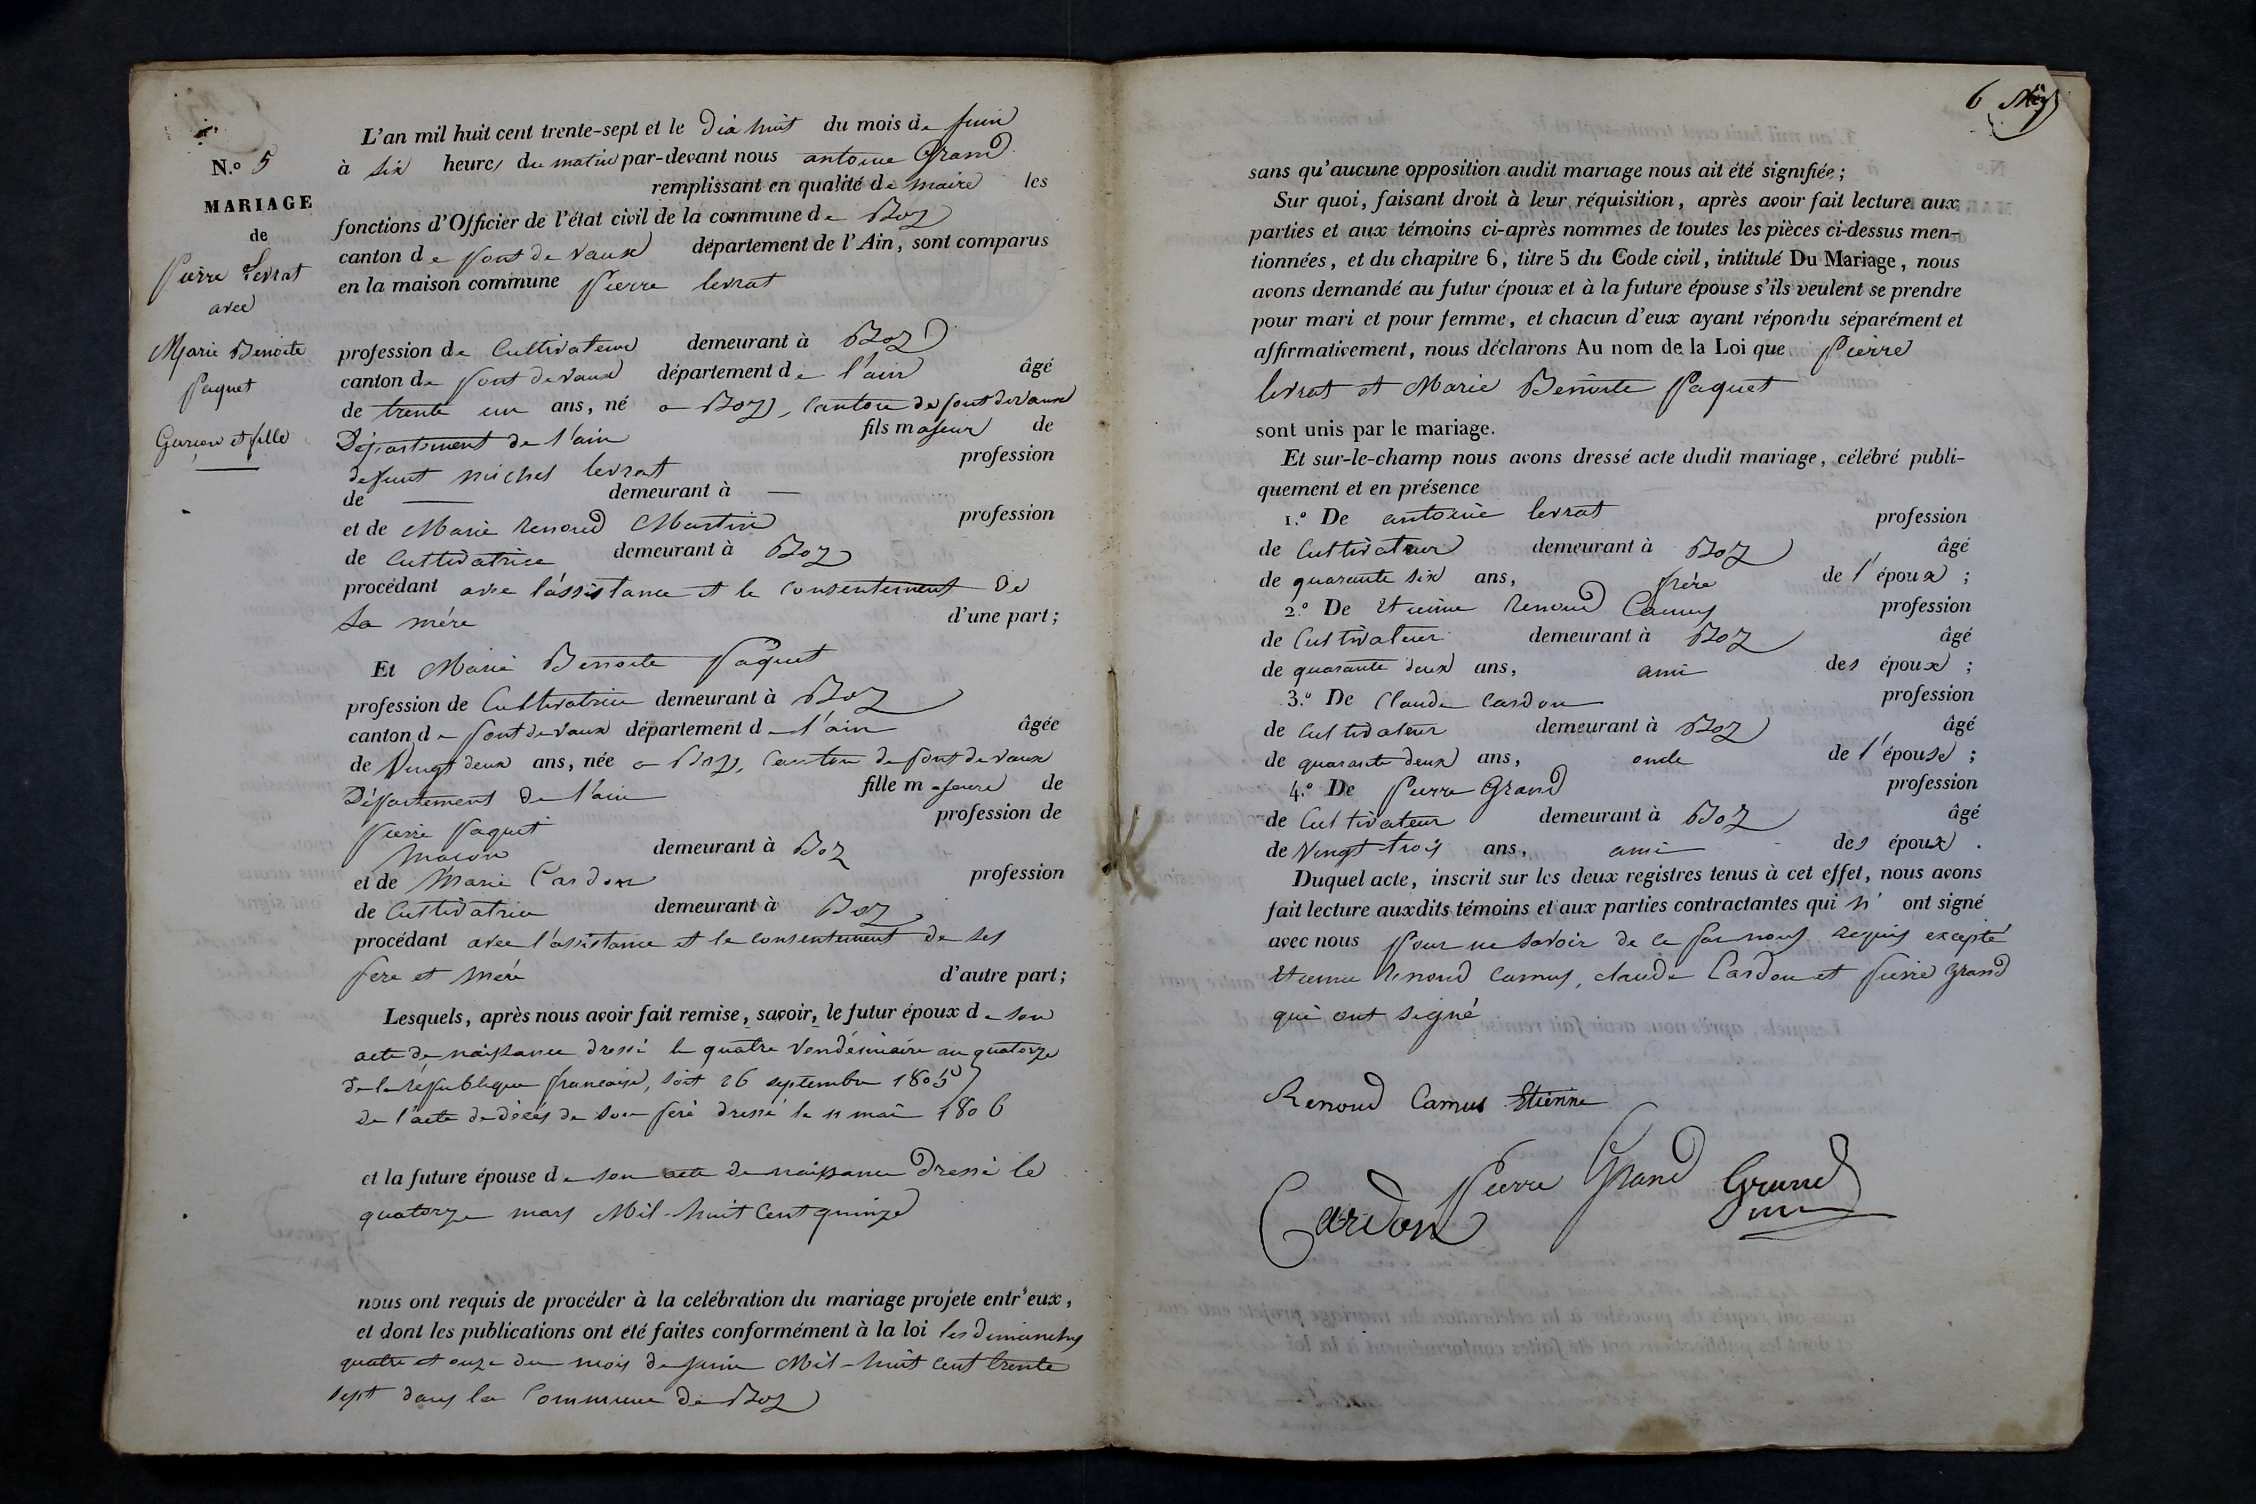 N.º 5
MARIAGE
de
Pierre Levrat
avec
Marie Benoite
Paquet
Garçon et fille
L'an mil huit cent trente-sept et le dix huit du mois de juin
à six heures du matin par-devant nous antoine Grand
remplissant en qualité de maire les
fonctions d'Officier de l'état civil de la commune de Boz
canton de pont de vaux département de l'Ain, sont comparus
en la maison commune Pierre levrat
profession de Cultivateur demeurant à Boz
canton de pont de vaux département de l'ain âgé
de trente un ans, né a Boz, canton de pont de vaux
Département de l'ain fils majeur de
defunt michel levrat profession
de — demeurant à —
et de Marie renoud Martin profession
de Cultivatrice demeurant à Boz
procédant avec l'assistance et le consentement de
sa mére d'une part;
Et Marie Benoite Paquet
profession de Cultivatrice demeurant à Boz
canton de pont de vaux département de l'ain âgée
de Vingt deux ans, née a Boz, canton de pont de vaux
Département de l'ain fille majeure de
Pierre Paquet profession de
maçon demeurant à Boz
et de Marie Cardon profession
de Cultivatrice demeurant à Boz
procédant avec l'assistance et le consentement de ses
pere et mère d'autre part;
Lesquels, après nous avoir fait remise, savoir, le futur époux de son
acte de naissance dressé le quatre Vendémiaire an quatorze
de la république française, soit 26 septembre 1805
de l'acte de décés de son père dressé le 11 mai 1806
et la future épouse de son acte de naissance Dressé le
quatorze mars Mil-huit Cent quinze
nous ont requis de procéder à la celébration du mariage projete entr'eux,
et dont les publications ont été faites conformément à la loi les dimanches
quatre et onze du mois de juin Mil-huit cent trente
sept dans la Commune de Boz
6
sans qu'aucune opposition audit mariage nous ait été signifiée;
Sur quoi, faisant droit à leur réquisition, après avoir fait lecture aux
parties et aux témoins ci-après nommes de toutes les pièces ci-dessus men-
tionnées, et du chapitre 6, titre 5 du Code civil, intitulé Du Mariage, nous
avons demandé au futur époux et à la future épouse s'ils veulent se prendre
pour mari et pour femme, et chacun d'eux ayant répondu séparément et
affirmativement, nous déclarons Au nom de la Loi que Pierre
levrat et Marie Benoite Paquet
sont unis par le mariage.
Et sur-le-champ nous avons dressé acte dudit mariage, célébré publi-
quement et en présence
1.º De antoine levrat profession
de Cultivateur demeurant à Boz âgé
de quarante six ans, frére de l'époux;
2.º De Etienne Renoud Camus profession
de Cultivateur demeurant à Boz âgé
de quarante deux ans, ami des époux;
3.º De Claude Cardon profession
de Cultivateur demeurant à Boz âgé
de quarante deux ans, oncle de l'épouse;
4.º De Pierre Grand profession
de Cultivateur demeurant à Boz âgé
de Vingt trois ans, ami des époux.
Duquel acte, inscrit sur les deux registres tenus à cet effet, nous avons
fait lecture auxdits témoins et aux parties contractantes qui n' ont signé
avec nous pour ne savoir de ce par nous requis excepté
Etienne Renoud Camus, claude Cardon et pierre Grand
qui ont signé
Renoud Camus Etienne
Cardon Pierre Grand Grand